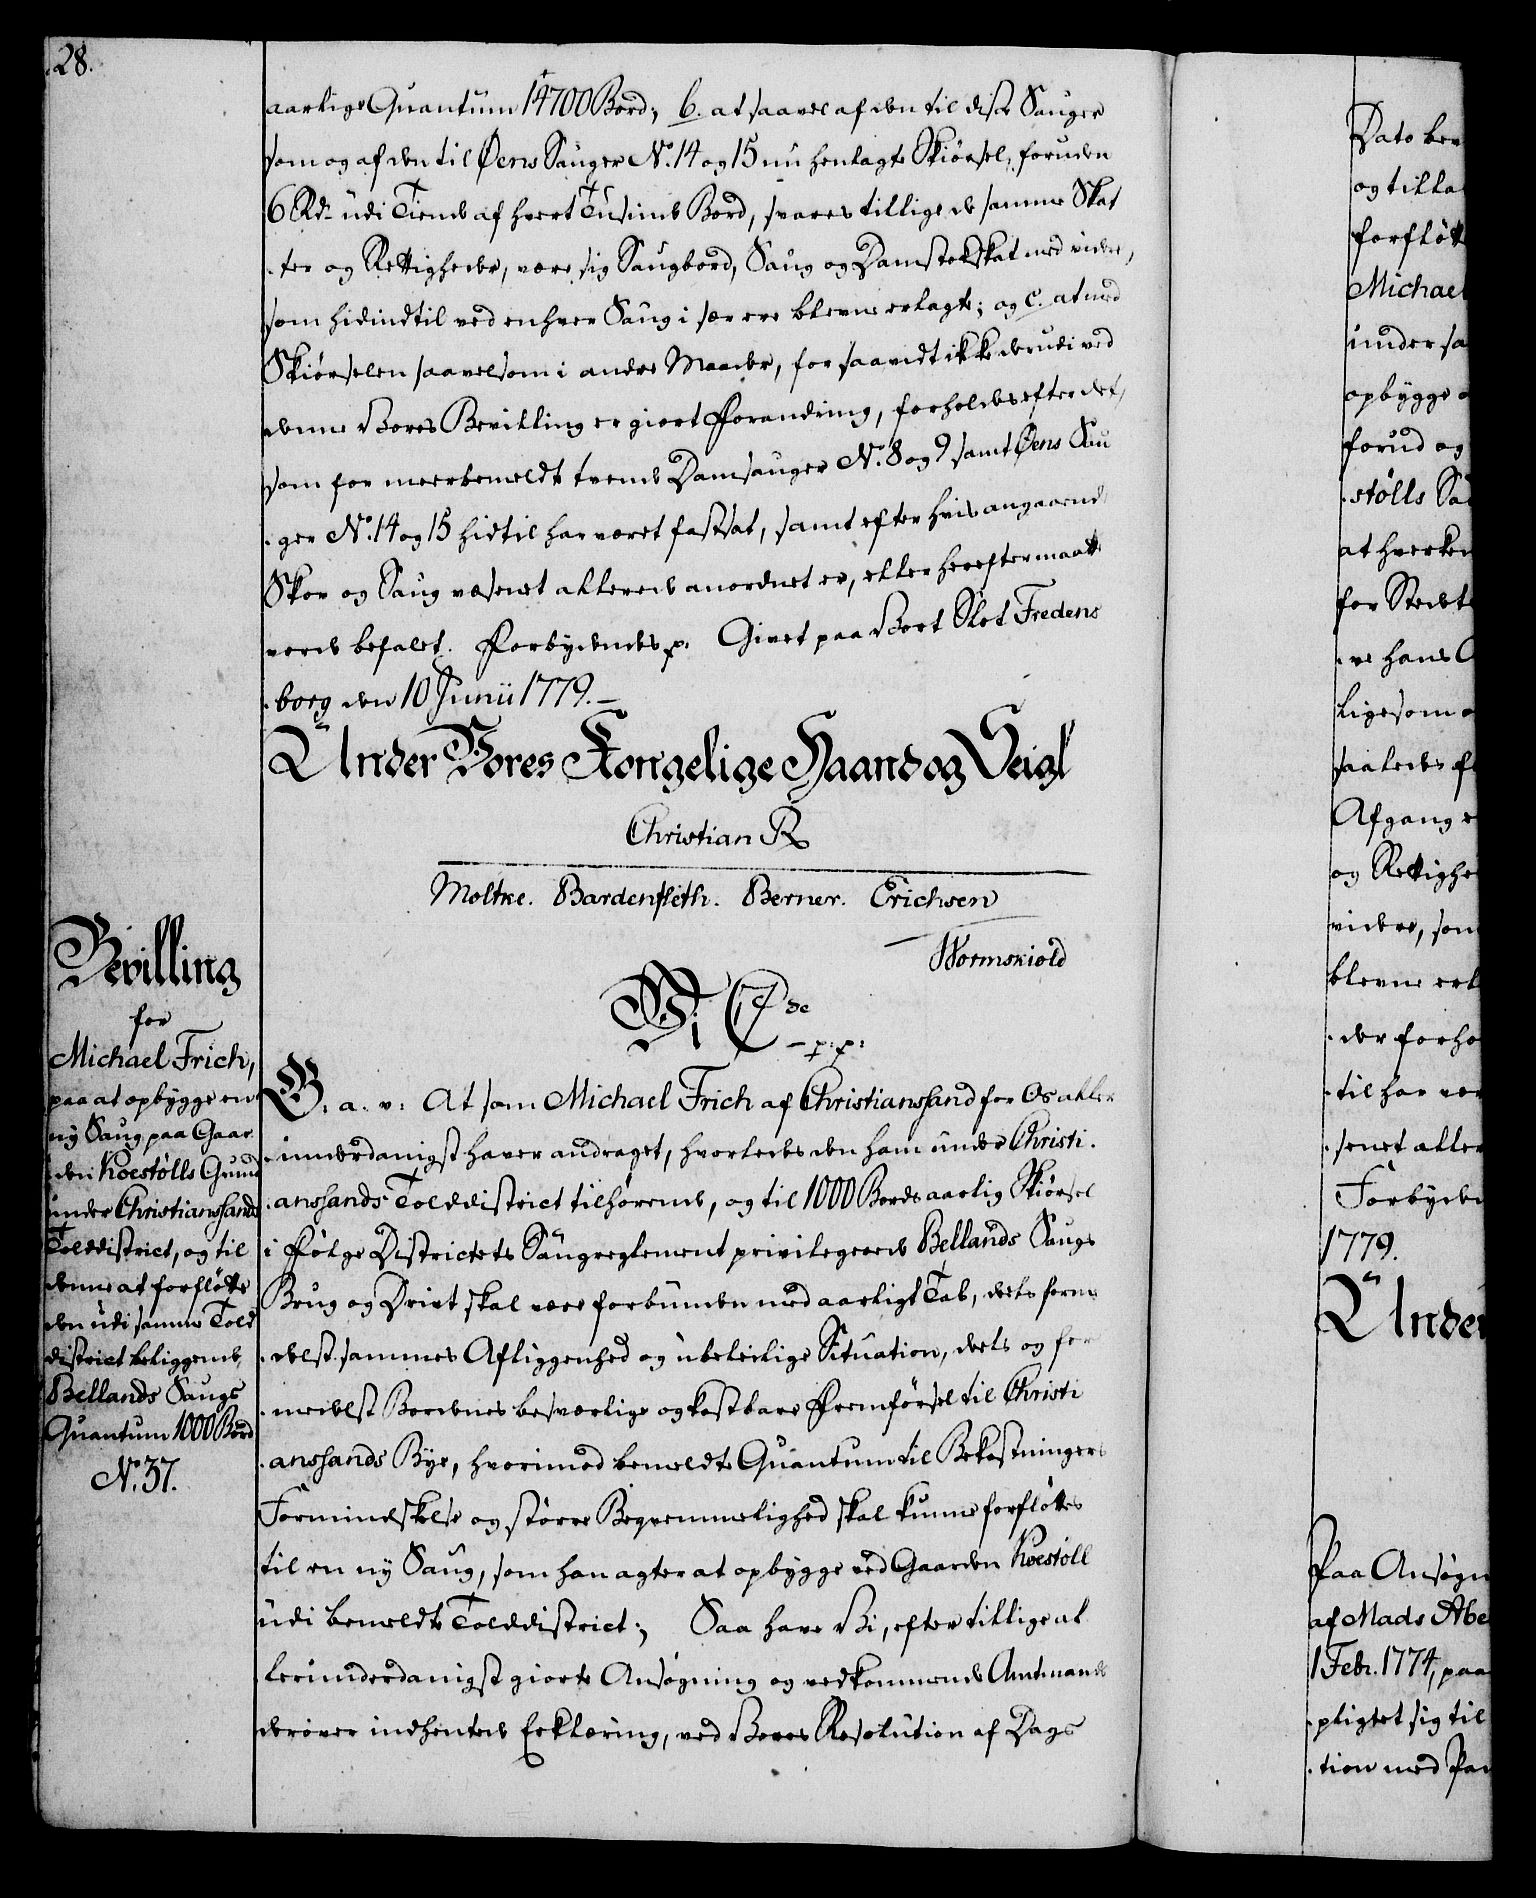 28.
aarlige Quantum 14700 Bord; b. at saavel af den til disse Sauger
som og af den til Øens Sauger No. 14 og 15 nu henlagte Skiørsel, foruden
6 Rd. udi Tiende af hvert Tusinde Bord, svares tillige de samme Skat
ter og Rettigheder, være sig Saugbord, Saug og Damstokskat med videre,
som hidindtil ved enhver Saug i sær ere blevne erlagte; og c. at med
Skiørselen saavelsom i andre Maader, for saavidt ikke derudi ved
denne Vores Bevilling er giort Forandring, forholdes efter det,
som for meerbemeldte tvende Damsauger No. 8 og 9 samt Øens Sau
ger No. 14 og 15 hidtil har været fastsat, samt efter hvis angaaende
Skov og Saugvæsenet allerede anordnet er, eller herefter maatte
vorde befalet. Forbydendes p. Givet paa Vort Slot Fredens
borg den 10 Junii 1779.
Under Vores Kongelige Haand og Seigl
Christian R
Moltke. Bardenfleth. Berner. Erichsen
Wormskiold
Bevilling
for
Michael Frich,
paa at opbygge en
ny Saug paa Gaar
den Koestølls Grund
under Christianssands
Tolddistrict, og til
denne at forfløtte
den udi samme Told
district beliggende
Bellands Saugs
Quantum 1000 Bord
No. 37.
Vi C 7de
p: p:
G. a. v: At som Michael Frich af Christianssand for Os aller
underdanigst haver andraget, hvorledes den ham under Christi
anssands Tolddistrict tilhørende, og til 1000 Bords aarlig Skiørsel
i Følge Districtets Saugreglement privilegerede Bellands Saugs
Brug og Drivt skal være forbunden med aarligt Tab, deels forme
delst sammes Afliggenhed og ubeleilige Situation, deels og for
medelst Bordenes besværlige og kostbare Fremførsel til Christi
anssands Bye, hvorimod bemeldte Quantum til Bekostningers
Formindskelse og større Beqvemmelighed skal kunne forfløttes
til en ny Saug, som han agter at opbygge ved Gaarden Koestøll
udi bemeldte Tolddistrict; Saa have Vi, efter tillige al
lerunderdanigst giorte Ansøgning og vedkommende Amtmands
derover indhentede Erklæring, ved Vores Resolution af Dags
Dato bev
og tilla
forfløtt
Michael
under sa
opbygge
forud og
stølls Sa
at hverken
for Stedt
re hans
ligesom
saaledes
Afgang
og Rettighe
videre, som
blevne erl
der forho
til har vær
senet aller
Forbyden
1779.
Under
Paa Ansøgn
af Mads Abe
1 Febr. 1774, paa
pligtet sig til
tion med Pa